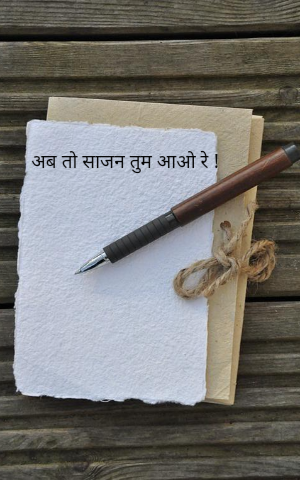 अब तो साजन तुम आओ रे !